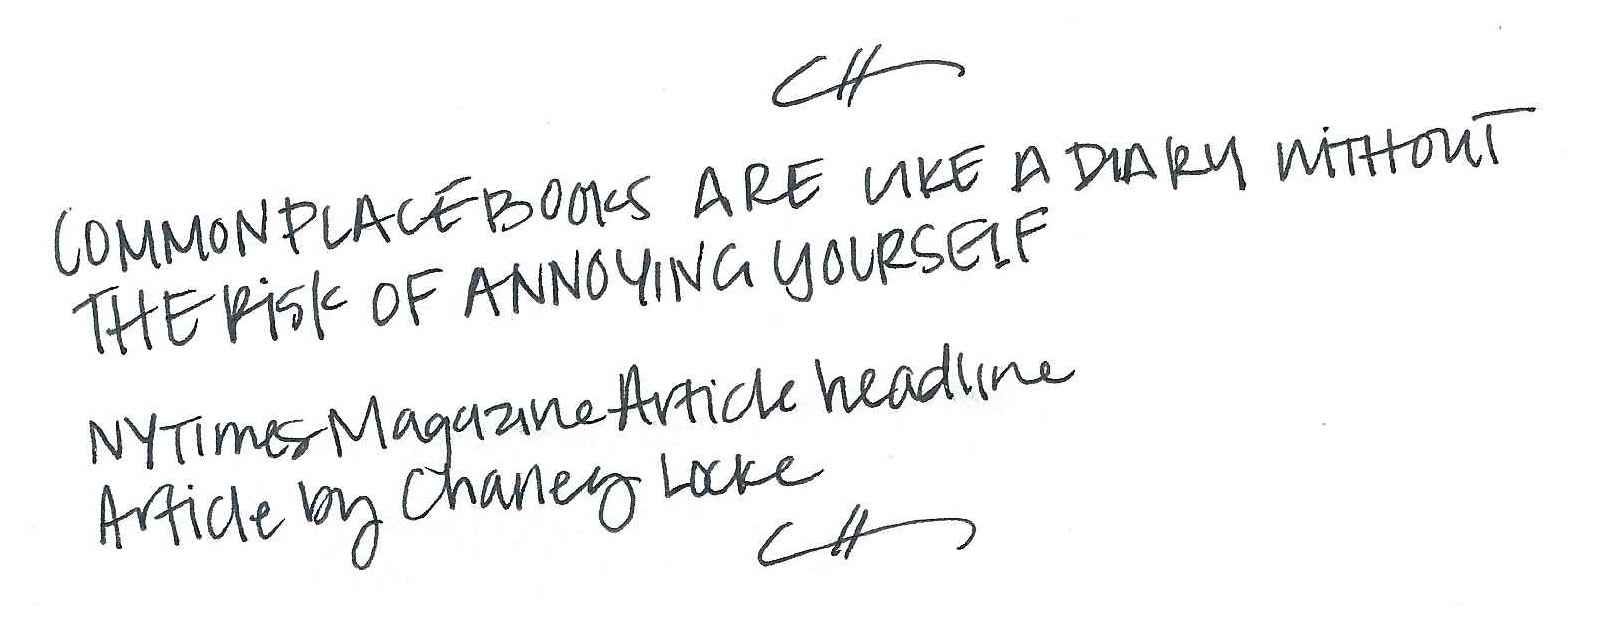 COMMONPLACE BOOKS ARE LIKE A DIARY WITHOUT
THE RISK OF ANNOYING YOURSELF
NYTimes Magazine Article headline
Article by Chaney Locke